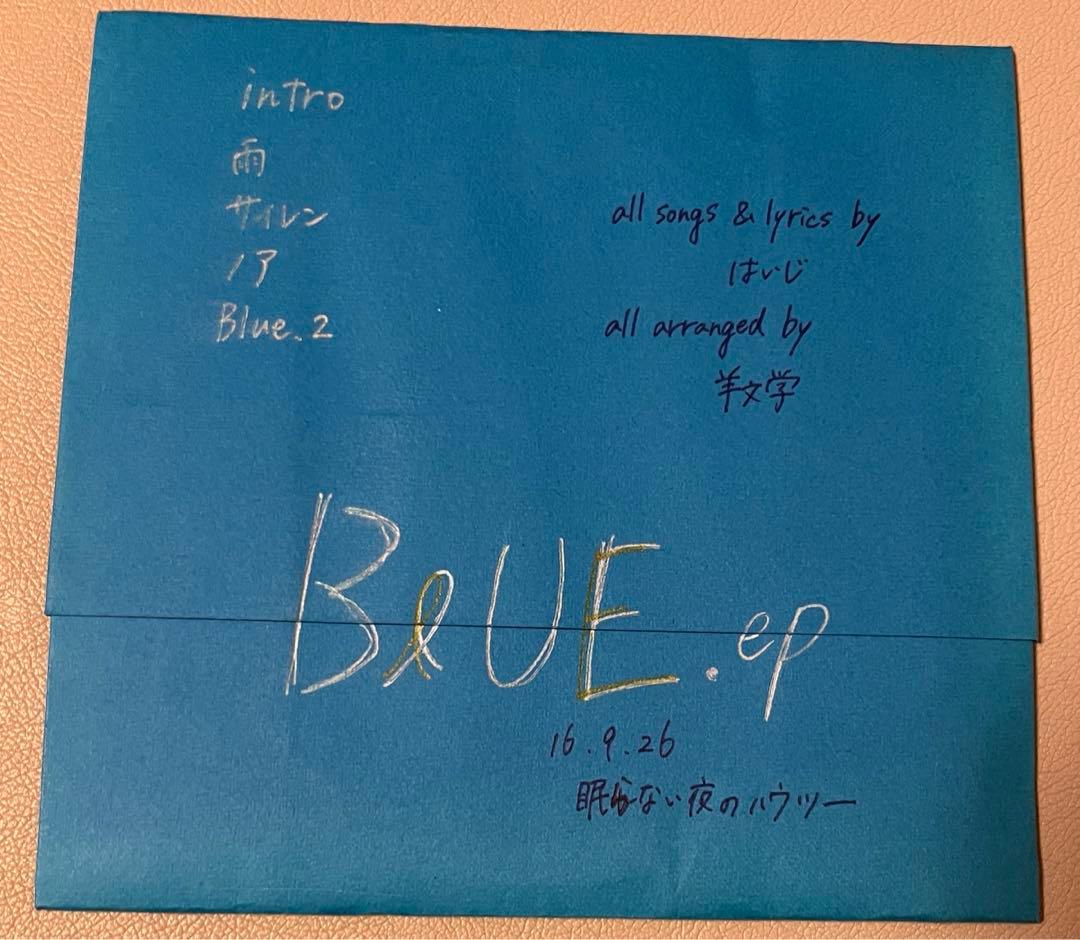 intro
雨
サイレン
ノア
Blue.2
all songs & lyrics by
はいじ
all arranged by
羊文学
BlUE.ep
16.9.26
眠らない夜のハウツー